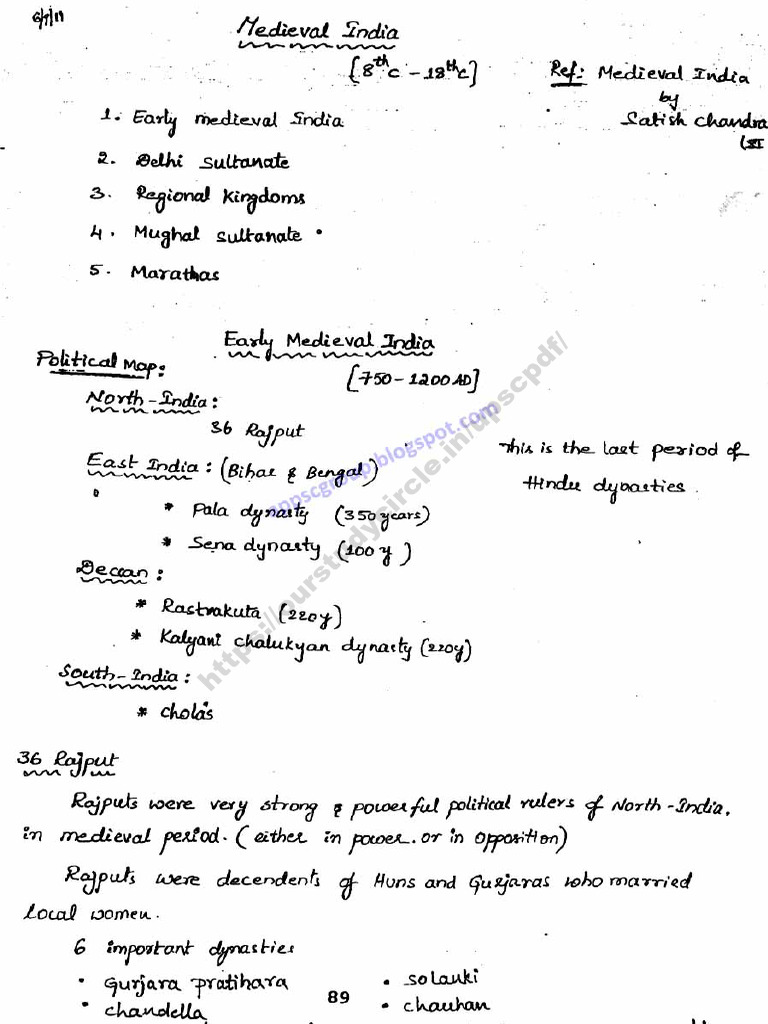 6/7/11
Medieval India
[8th c - 18th c]
Ref: Medieval India
by
Satish Chandra
(XI
1. Early medieval India
2. Delhi Sultanate
3. Regional Kingdoms
4. Mughal Sultanate
5. Marathas
Early Medieval India
Political Map:
[750 - 1200 AD]
North-India:
36 Rajput
This is the last period of
Hindu dynasties.
East India: (Bihar & Bengal)
* Pala dynasty (350 years)
* Sena dynasty (100 y)
Deccan:
* Rastrakuta (220y)
* Kalyani chalukyan dynasty (220y)
South-India:
* cholas
appscgroup.blogspot.com
https://ourstudycircle.in/upscpdf/
36 Rajput
Rajputs were very strong & powerful political rulers of North-India.
in medieval period. (either in power. or in opposition)
Rajputs were decendents of Huns and Gurjaras who married
local women.
6 important dynasties
• Gurjara pratihara
• solanki
• chandella
• chauhan
89